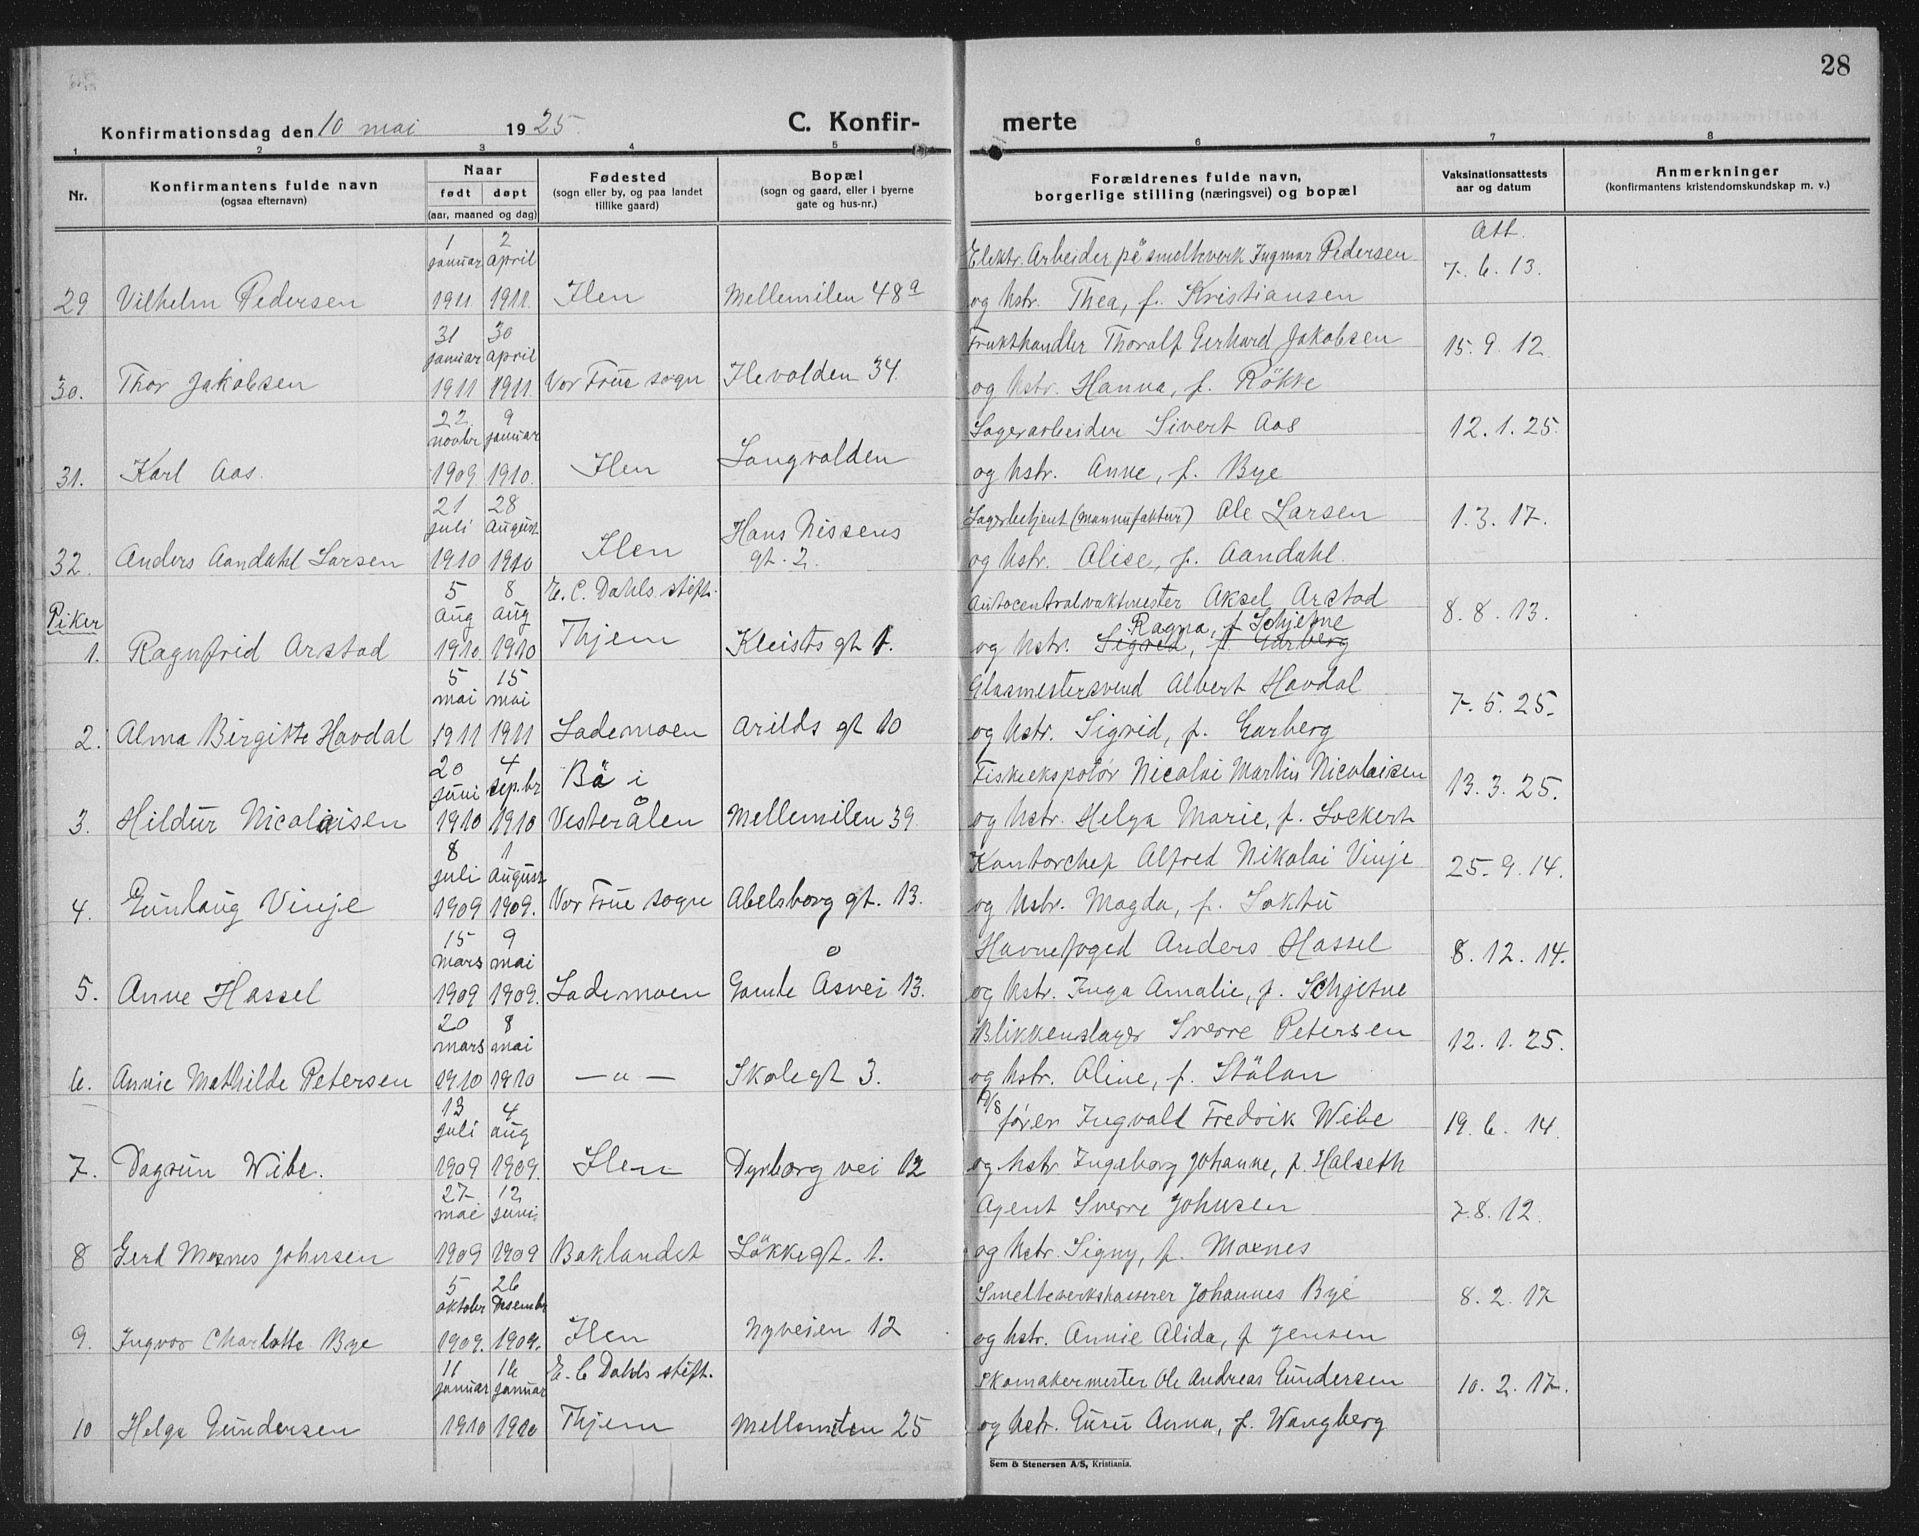 28
Konfirmationsdag den 10 mai 1925. C. Konfir- merte
1 2 3 4 5 6 7 8
Nr.
Konfirmantens fulde navn
(ogsaa efternavn)
Naar
født døpt
(aar, maaned og dag)
Fødested
(sogn eller by, og paa landet
tillike gaard)
Bopæl
(sogn og gaard, eller i byerne
gate og hus-nr.)
Forældrenes fulde navn,
borgerlige stilling (næringsvei) og bopæl
Vaksinationsattests
aar og datum
Anmerkninger
(konfirmantens kristendomskundskap m. v.)
1 januar 2 april Elektr. Arbeider på smelteverk Ingmar Pedersen Att. 7. 6. 13.
29 Vilhelm Pedersen 1911 1911. Ilen Mellemilen 48a og hstr. Thea, f. Kristiansen
31 januar 30 april Frukthandler Thoralf Gerhard Jakobsen 15. 9. 12.
30. Thor Jakobsen 1911 1911. Vor Frue sogn Ilevolden 34 og hstr. Hanna, f. Rökke
22. novbr 9 januar Lagerarbeider Sivert Aas 12. 1. 25.
31. Karl Aas. 1909 1910. Ilen Langvolden og hstr. Anne, f. Bye
21 juli 28 August Lagerbetjent (mannufaktur) Ole Larsen 1. 3. 17.
32. Anders Aandahl Larsen 1910 1910 Ilen Hans Nissens gt. 2. og hstr. Alise, f. Aandahl.
Piker
5 aug 8 aug E. C. Dahls stift. Autocentralvaktmester Aksel Arstad 8. 8. 13.
Ragna, f. Schjetne
1. Ragnfrid Arstad 1910. 1910 Thjem Kleists gt 1. og hstr. Sigrid, f. Garberg
5 mai 15 mai Glasmestersvend Albert Havdal 7. 5. 25.
2. Alma Birgitte Havdal 1911 1911 Lademoen Arilds gt 10 og hstr. Sigrid, f. Garberg
20 juni 4 sep.br Bö i Fiskeekspotör Nicolai Martin Nicolaisen 13. 3. 25.
3. Hildur Nicolaisen 1910 1910 Vesterålen Mellemilen 39. og hstr. Helga Marie, f. Lockert
8 juli 1 august Kontorchef Alfred Nikolai Vinje 25. 9. 14.
4. Gunlaug Vinje 1909 1909. Vor Frue sogne Abelsborg gt. 13. og hstr. Magda, f. Loktu
15 mars 9 mai Havnefoged Anders Hassel 8. 12. 14.
5. Anne Hassel 1909 1909. Lademoen Gamle Åsvei 13. og hstr. Inga Amalie, f. Schjetne
20 mars 8 mai Blikkenslager Sverre Petersen 12. 1. 25.
6. Annie Mathilde Petersen 1910 1910 — " — Skole gt 3. og hstr. Aline, f. Stölan
13 juli 4 aug D/S förer Ingvald Fredrik Wibe 19. 6. 14.
7. Dagrun Wibe. 1909 1909. Ilen Dyrborg vei 12 og hstr. Ingeborg Johanne, f. Halseth
27. mai 12 juni. Agent Sverre Johnsen 7. 8. 12.
8 Gerd Moxnes Johnsen 1909 1909 Baklandet Lökke gt. 1. og hstr. Signy, f. Moxnes
5 oktober 26 Desembr Smelteverkskasserer Johannes Bye 8. 2. 17
9. Ingvor Charlotte Bye 1909. 1909. Ilen Nyveien 12 og hstr. Annie Alida, f. Jensen
11 januar 16 januar E. C. Dahls stift. Skomakermester Ole Andreas Gundersen 10. 2. 17.
10 Helga Gundersen 1910 1910 Thjem Mellemilen 25 og hstr. Guru Anna, f. Wangberg
Sem & Stenersen A/S, Kristiania.